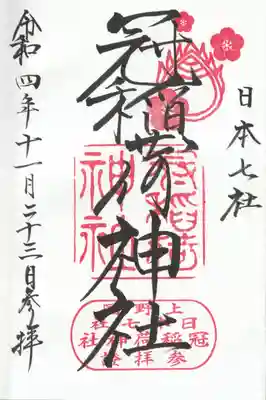 日本七社
冠稲荷神社
令和四年十一月二十三日参拝
冠稲荷
神社
上野國
日本七社
冠稲荷神社